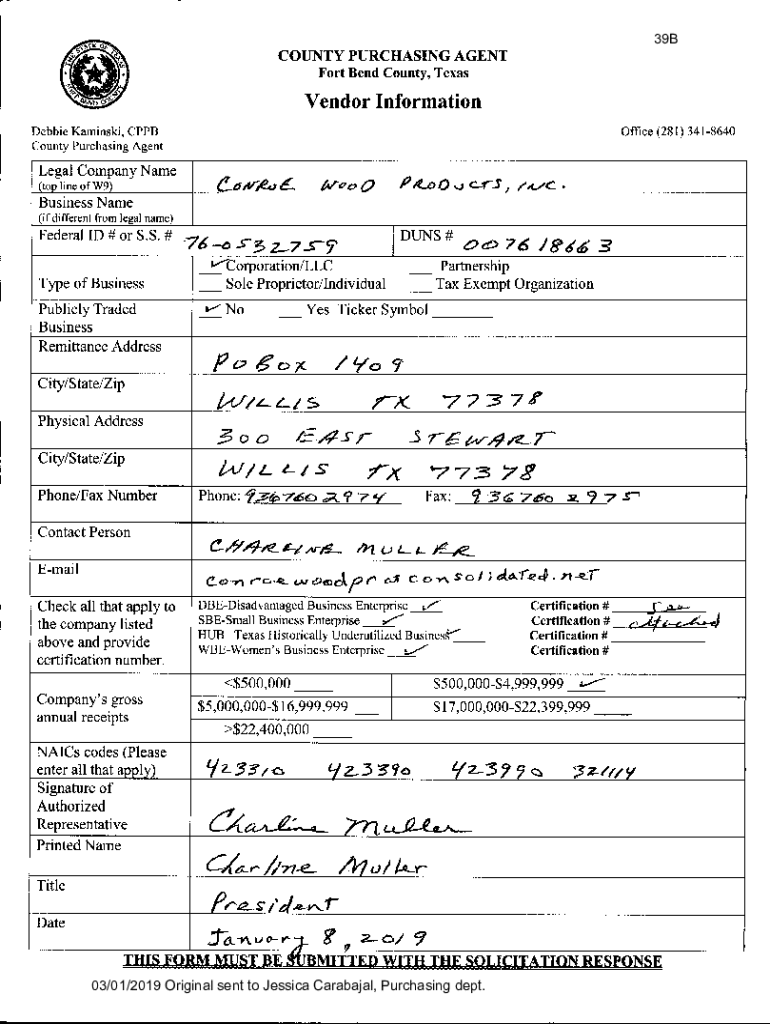 39B
THE STATE OF TEXAS
FORT BEND COUNTY
COUNTY PURCHASING AGENT
Fort Bend County, Texas
Vendor Information
Debbie Kaminski, CPPB
County Purchasing Agent
Office (281) 341-8640
Legal Company Name
(top line of W9)
CONROE WOOD PRODUCTS, INC.
Business Name
(if different from legal name)
Federal ID # or S.S. # 76-0532759 DUNS # 007618663
Type of Business
✓ Corporation/LLC ___ Partnership
___ Sole Proprietor/Individual ___ Tax Exempt Organization
Publicly Traded
Business
✓ No ___ Yes Ticker Symbol ________
Remittance Address
PO Box 1409
City/State/Zip
WILLIS TX 77378
Physical Address
300 EAST STEWART
City/State/Zip
WILLIS TX 77378
Phone/Fax Number Phone: 936 760 2974 Fax: 936 760 2975
Contact Person
CHARLINE MULLER
E-mail
conroewoodpr at consolidated.net
Check all that apply to
the company listed
above and provide
certification number.
DBE-Disadvantaged Business Enterprise ✓ Certification # See
SBE-Small Business Enterprise ✓ Certification # attached
HUB Texas Historically Underutilized Business ✓ Certification #
WBE-Women's Business Enterprise ✓ Certification #
Company's gross
annual receipts
<$500,000 _____ $500,000-$4,999,999 ✓
$5,000,000-$16,999,999 ___ $17,000,000-$22,399,999 _____
>$22,400,000 _____
NAICs codes (Please
enter all that apply)
423310 423390 423990 321114
Signature of
Authorized
Representative
Charline Muller
Printed Name
Charline Muller
Title
President
Date
January 8, 2019
THIS FORM MUST BE SUBMITTED WITH THE SOLICITATION RESPONSE
03/01/2019 Original sent to Jessica Carabajal, Purchasing dept.